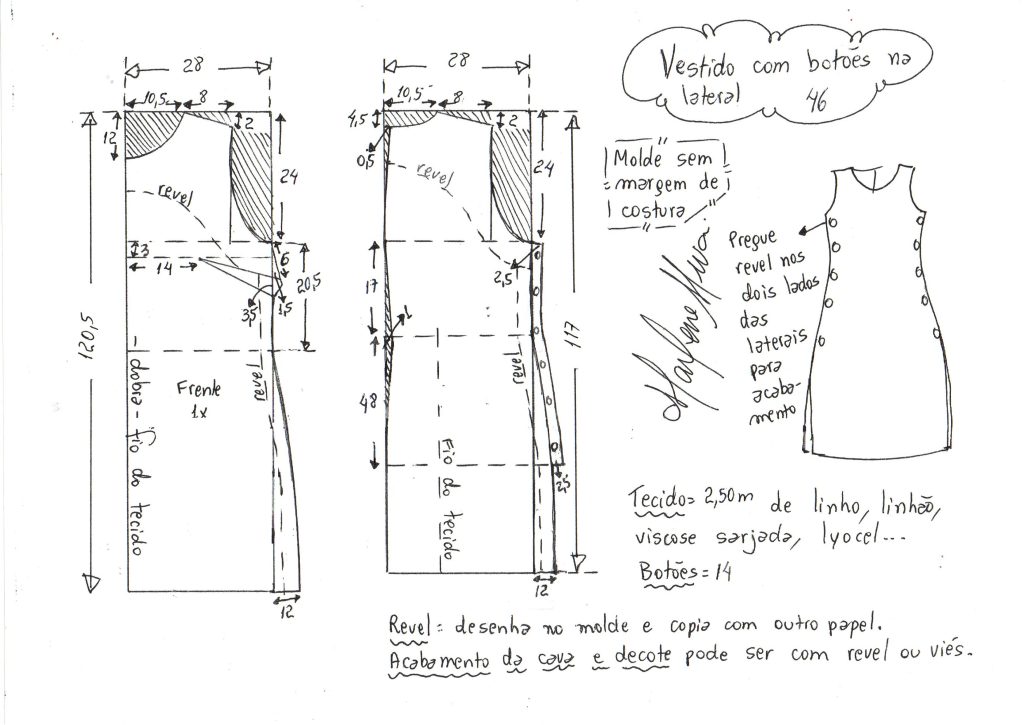 Vestido com botões na
lateral 46
Molde sem
margem de
costura
Marlene Mukai
Pregue
revel nos
dois lados
das
laterais
para
acaba-
mento
28
10,5
8
12
2
24
revel
3
14
6
1,5
3,5
20,5
120,5
dobra - fio do tecido
Frente
1x
revel
12
28
10,5
8
4,5
2
0,5
revel
24
17
2,5
1
48
revel
Fio do tecido
2,5
117
12
Tecido = 2,50m de linho, linhão,
viscose sarjada, lyocel...
Botões = 14
Revel = desenha no molde e copia com outro papel.
Acabamento da cava e decote pode ser com revel ou viés.